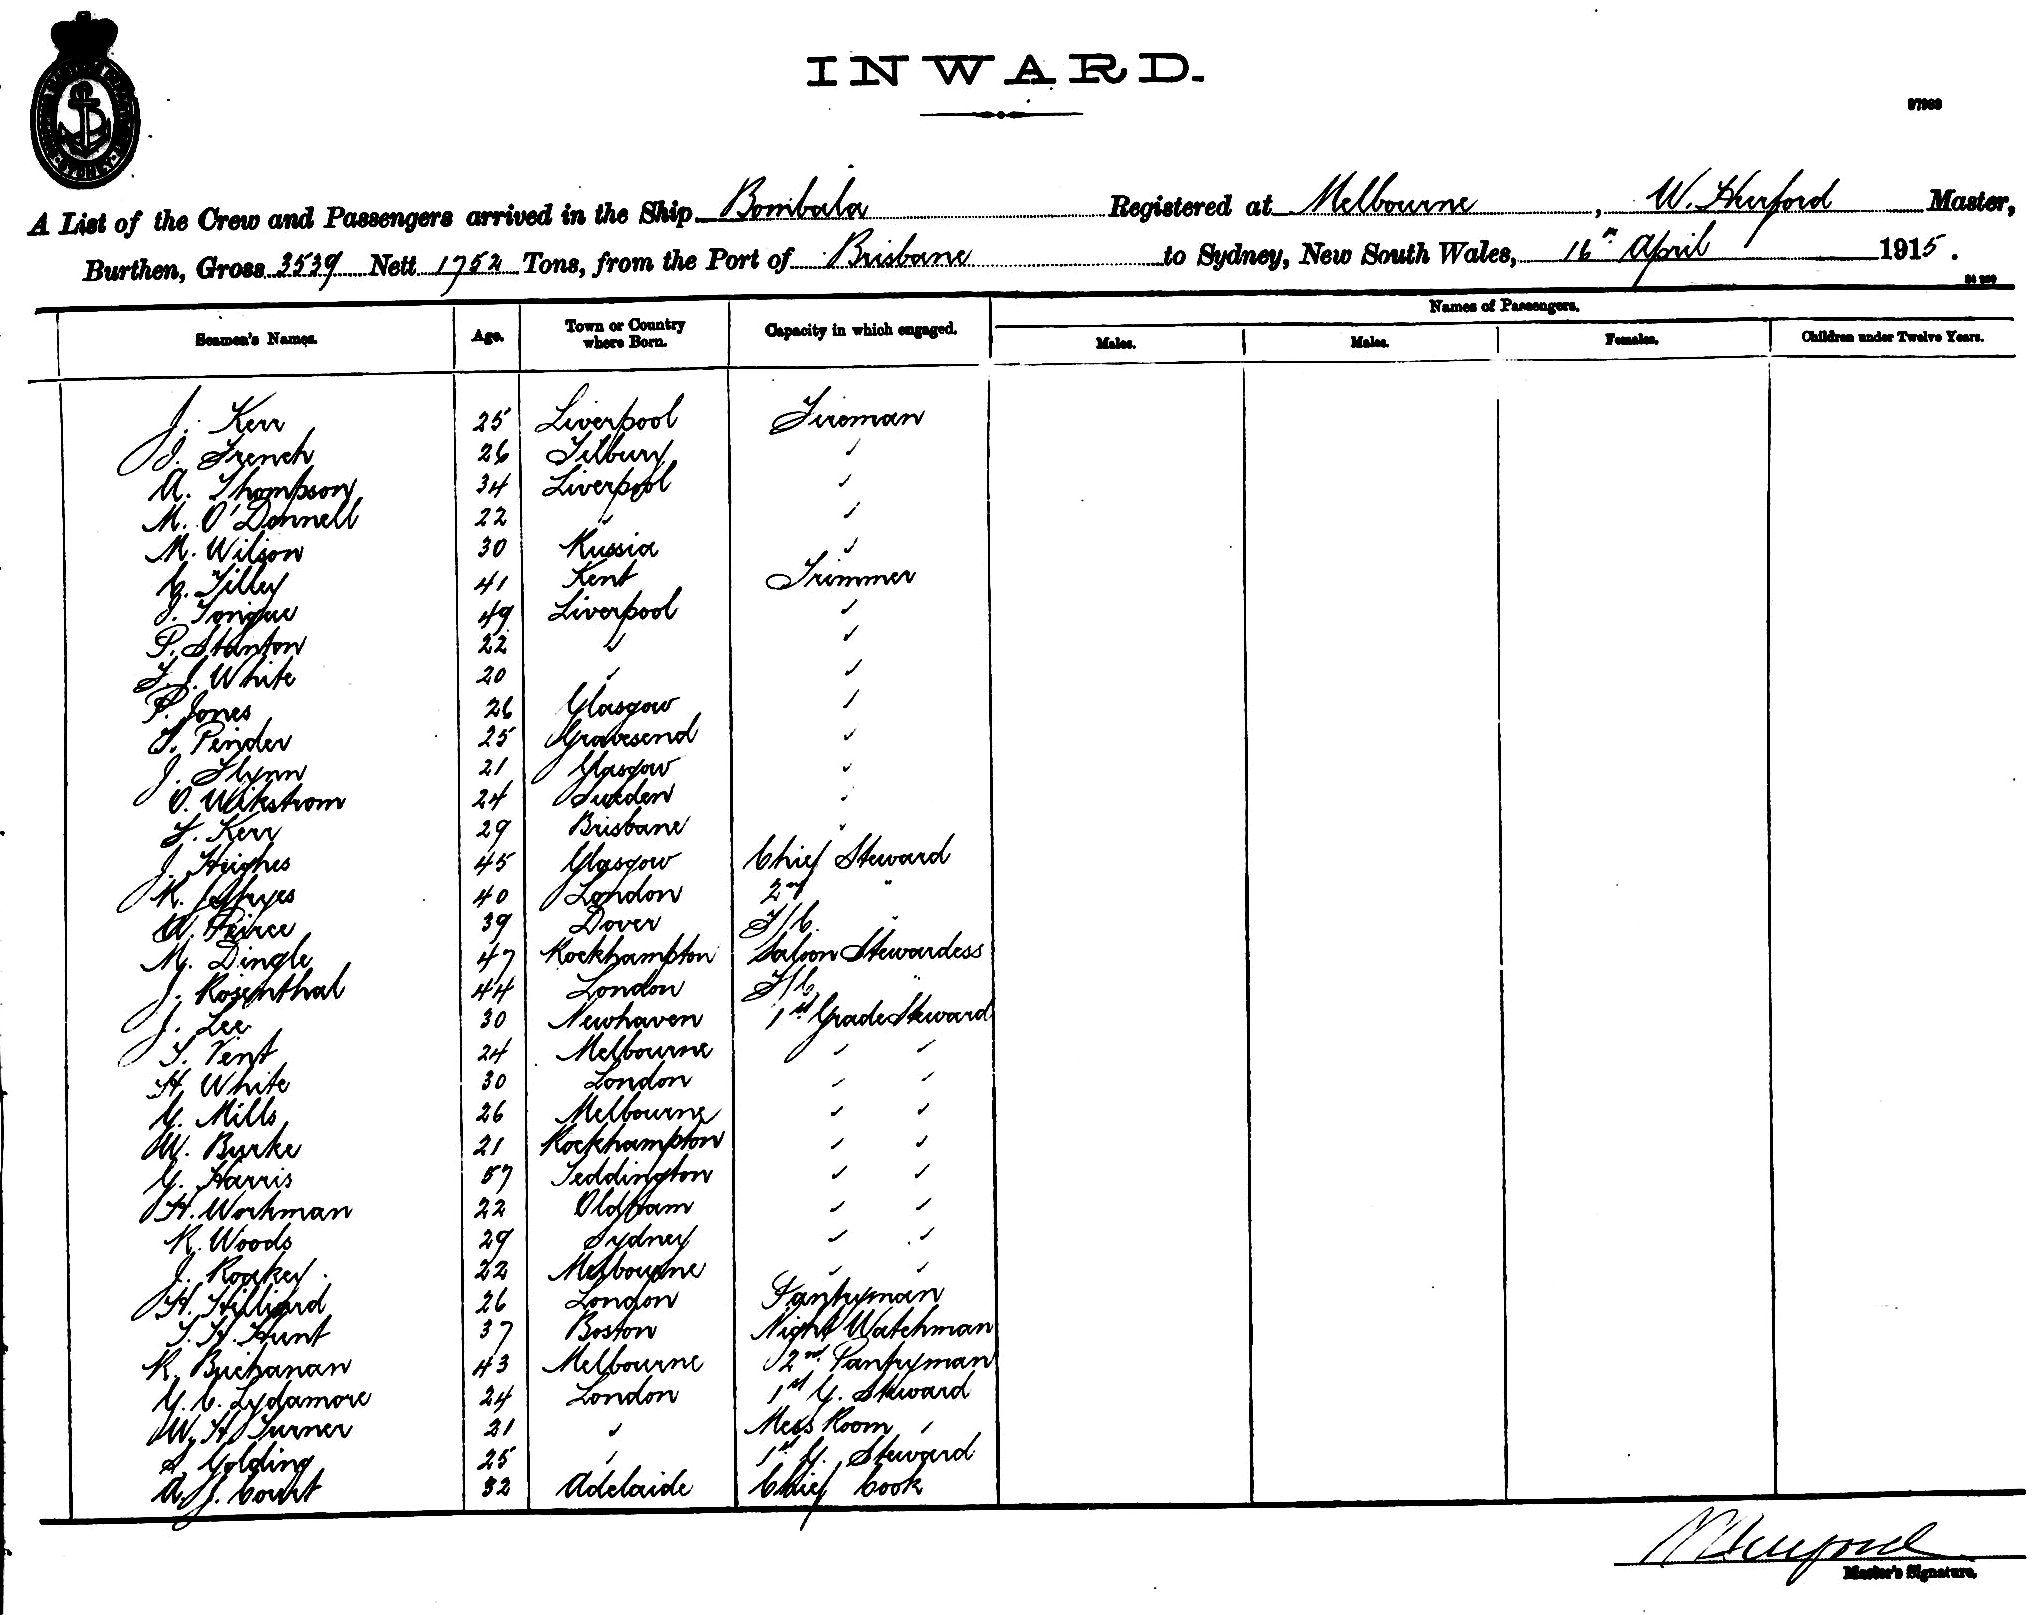 INWARD.
A List of the Crew and Passengers arrived in the Ship Bombala Registered at Melbourne, W. Hurford Master,
Burthen, Gross 3539 Nett 1752 Tons, from the Port of Brisbane to Sydney, New South Wales, 16th April 1915.
Names of Passengers.
Seamen's Names. Age. Town or Country where Born. Capacity in which engaged. Males. Males. Females. Children under Twelve Years.
J. Kerr 25 Liverpool Fireman
J. French 26 Tilbury "
A. Thompson 34 Liverpool "
M. O'Donnell 22 " "
M. Wilson 30 Russia "
C. Tilley 41 Kent Trimmer
J. Tongue 49 Liverpool "
P. Stanton 22 " "
F. J. White 20 " "
P. Jones 26 Glasgow "
T. Pinder 25 Gravesend "
J. Flynn 21 Glasgow "
O. Wikstrom 24 Sweden "
F. Kerr 29 Brisbane "
J. Hughes 45 Glasgow Chief Steward
R. Jeffryes 40 London 2nd "
W. Peirce 39 Dover F/C. "
M. Dingle 47 Rockhampton Saloon Stewardess
J. Rosenthal 44 London F/C "
J. Lee 30 Newhaven 1st Grade Steward
T. Vent 24 Melbourne " "
H. White 30 London " "
G. Mills 26 Melbourne " "
W. Burke 21 Rockhampton " "
G. Harris 57 Teddington " "
H. Workman 22 Oldham " "
R. Woods 29 Sydney " "
J. Rockey. 22 Melbourne " "
H. Hilliard 26 London Pantryman
T. H. Hunt 37 Boston Night Watchman
R. Buchanan 43 Melbourne 2nd Pantryman
G. C. Lydamore 24 London 1st G. Steward
W. H. Turner 21 " Mess Room "
S. Golding 25 " 1st G. Steward
A. J. Court 32 Adelaide Chief Cook
W Hurford
Master's Signature.